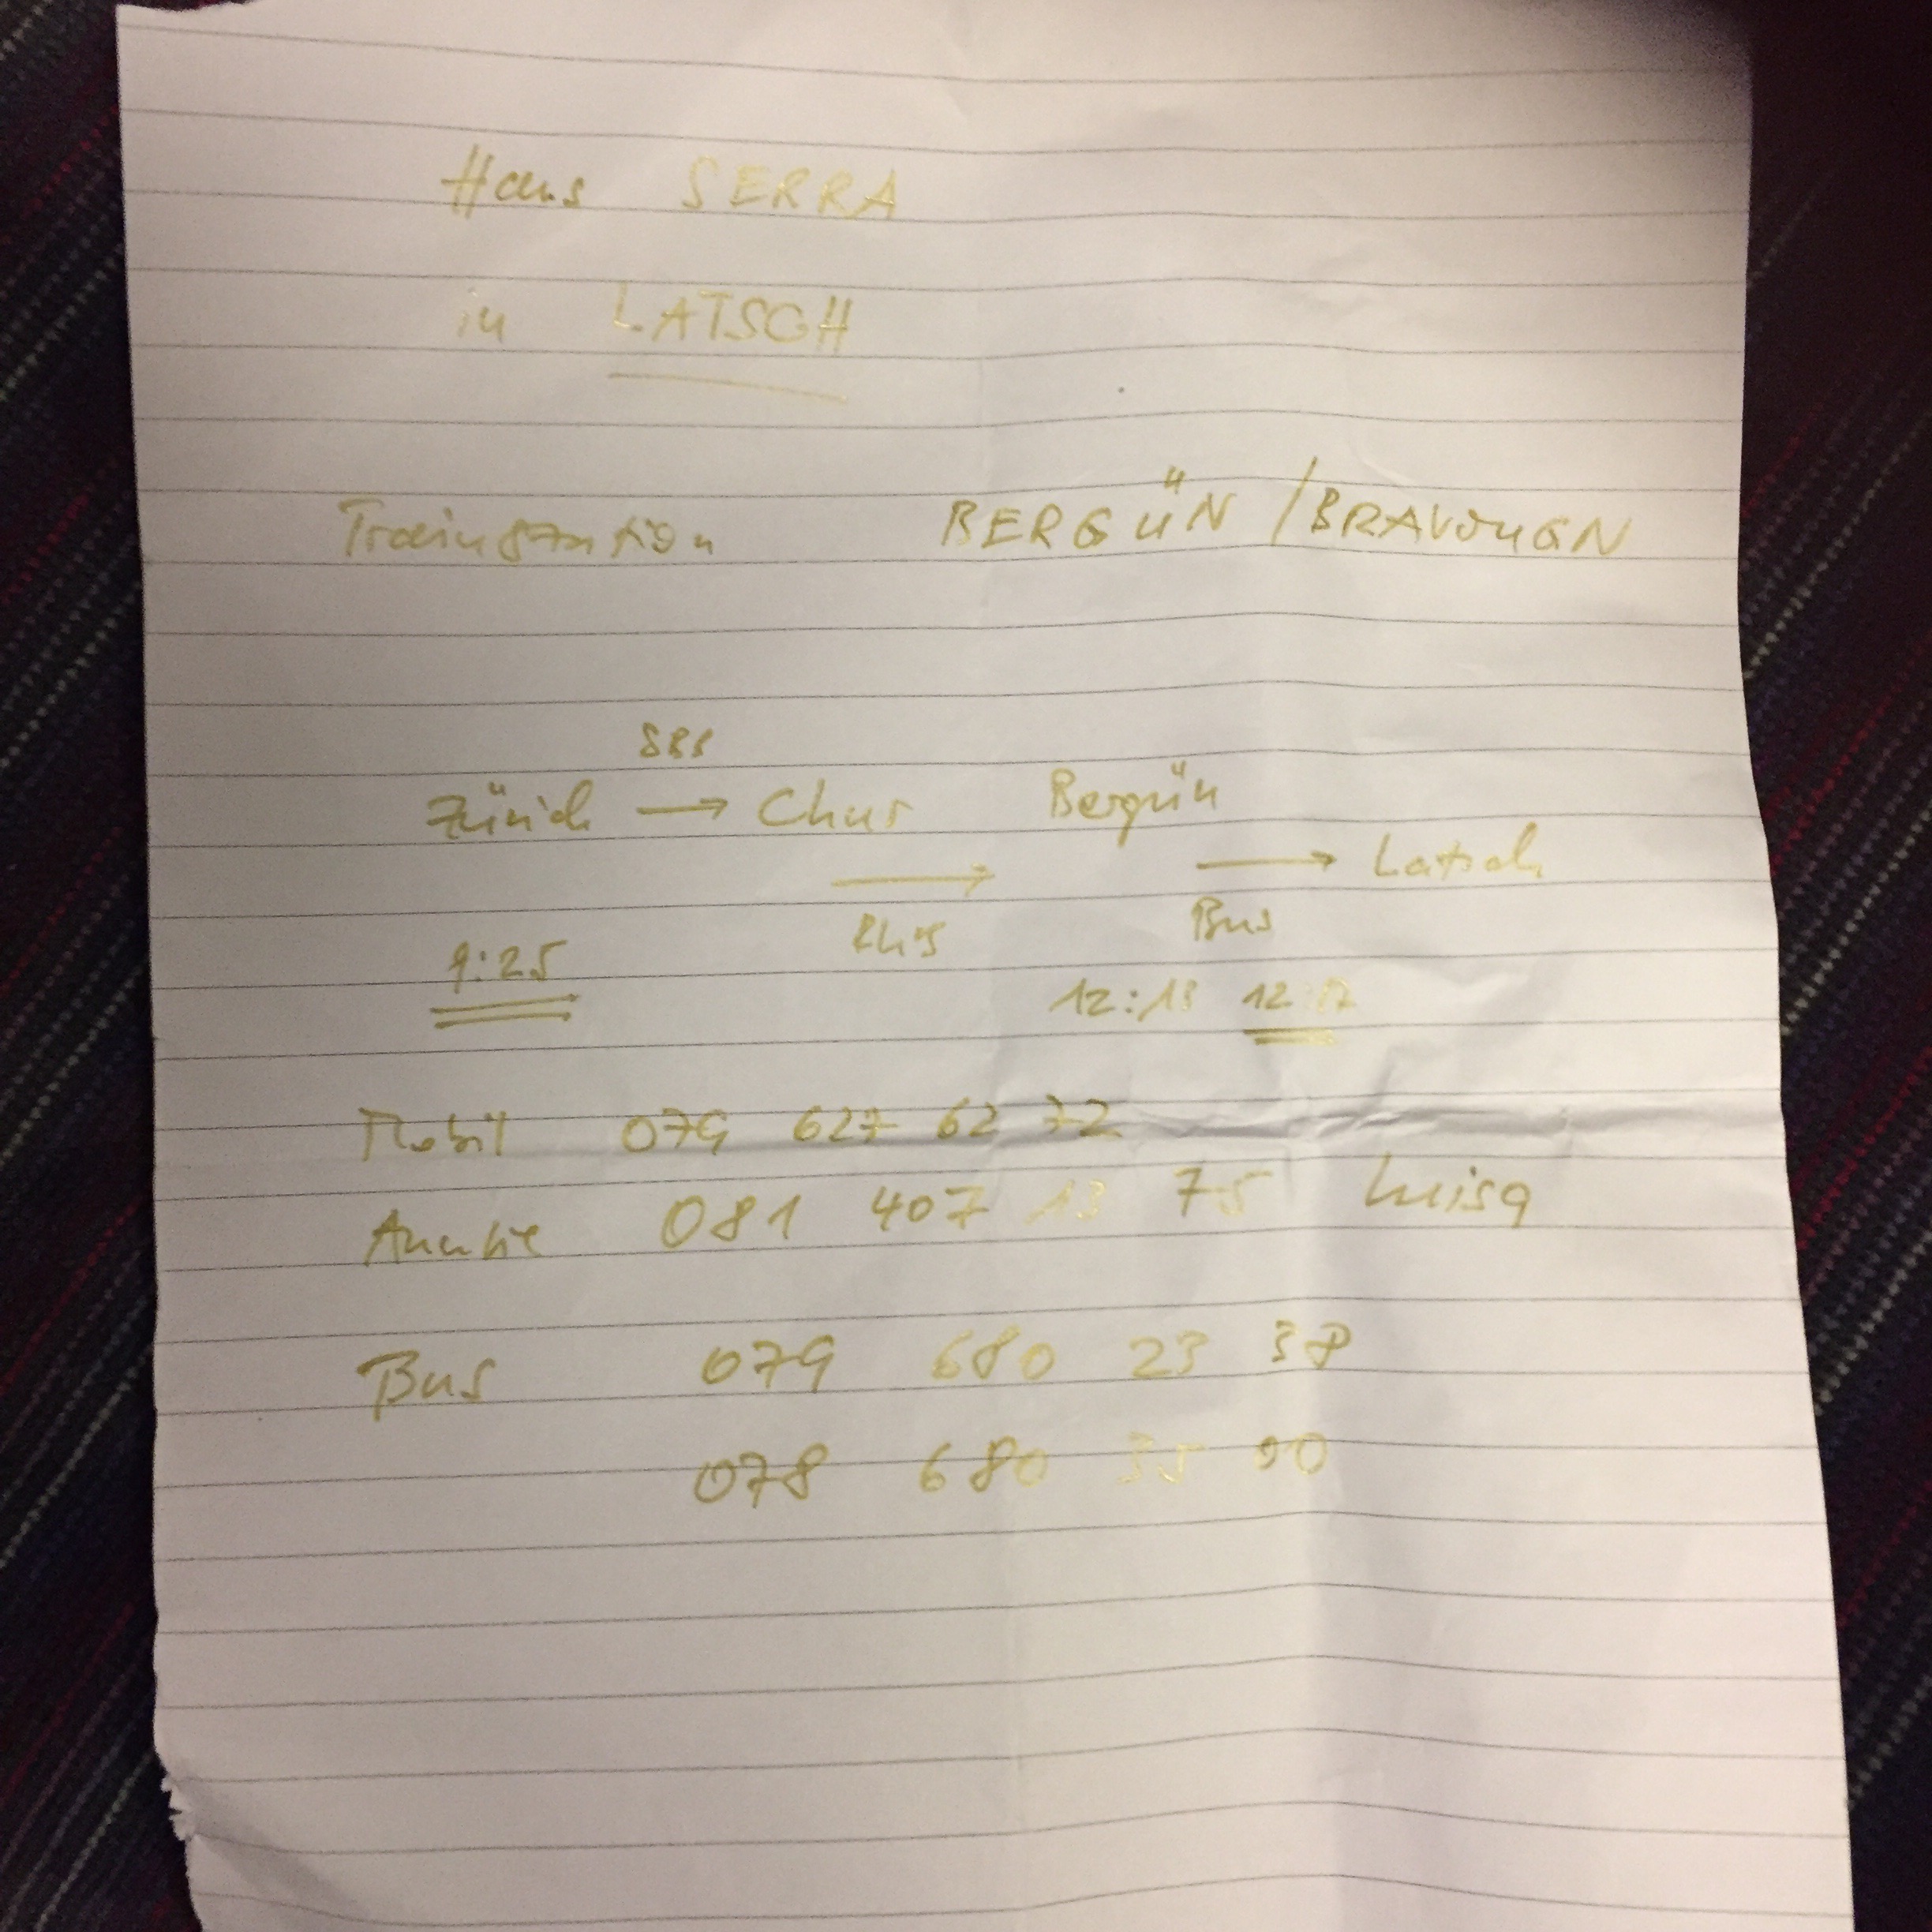 Haus SERRA
in LATSCH
Trainstation BERGÜN / BRAVOUGN
SBB
Zürich → Chur Bergün
→ → Latsch
RhB Bus
9:25
12:13 12:17
Mobil 079 627 62 72
081 407 13 75 Luisa
Bus 079 680 23 38
078 680 35 00